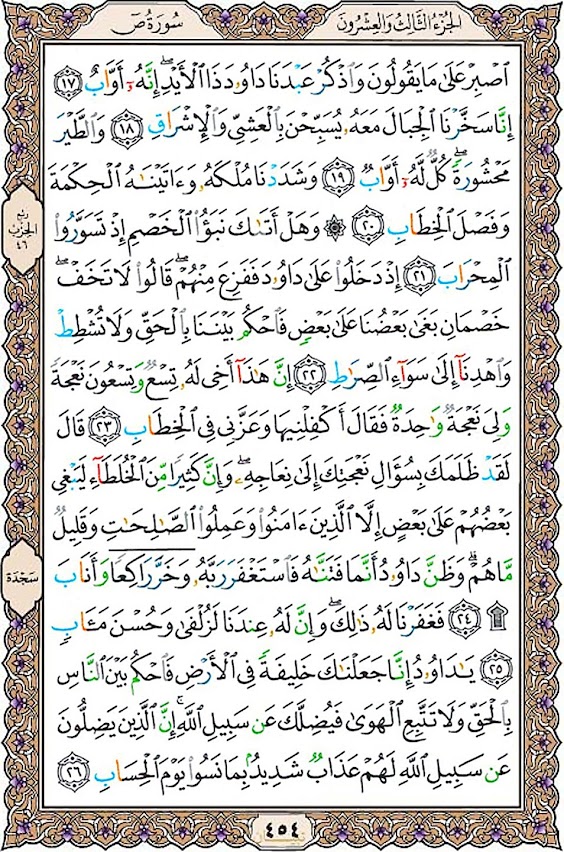 الجُزءُ الثَّالِثُ وَالعِشرُونَ
سُورَةُ صٓ
ٱصۡبِرۡ عَلَىٰ مَا يَقُولُونَ وَٱذۡكُرۡ عَبۡدَنَا دَاوُۥدَ ذَا ٱلۡأَيۡدِۖ إِنَّهُۥٓ أَوَّابٌ ١٧
إِنَّا سَخَّرۡنَا ٱلۡجِبَالَ مَعَهُۥ يُسَبِّحۡنَ بِٱلۡعَشِيِّ وَٱلۡإِشۡرَاقِ ١٨ وَٱلطَّيۡرَ
مَحۡشُورَةٗۖ كُلّٞ لَّهُۥٓ أَوَّابٞ ١٩ وَشَدَدۡنَا مُلۡكَهُۥ وَءَاتَيۡنَٰهُ ٱلۡحِكۡمَةَ
وَفَصۡلَ ٱلۡخِطَابِ ٢٠ ۞ وَهَلۡ أَتَىٰكَ نَبَؤُاْ ٱلۡخَصۡمِ إِذۡ تَسَوَّرُواْ
ٱلۡمِحۡرَابَ ٢١ إِذۡ دَخَلُواْ عَلَىٰ دَاوُۥدَ فَفَزِعَ مِنۡهُمۡۖ قَالُواْ لَا تَخَفۡۖ
خَصۡمَانِ بَغَىٰ بَعۡضُنَا عَلَىٰ بَعۡضٖ فَٱحۡكُم بَيۡنَنَا بِٱلۡحَقِّ وَلَا تُشۡطِطۡ
وَٱهۡدِنَآ إِلَىٰ سَوَآءِ ٱلصِّرَٰطِ ٢٢ إِنَّ هَٰذَآ أَخِي لَهُۥ تِسۡعٞ وَتِسۡعُونَ نَعۡجَةٗ
وَلِيَ نَعۡجَةٞ وَٰحِدَةٞ فَقَالَ أَكۡفِلۡنِيهَا وَعَزَّنِي فِي ٱلۡخِطَابِ ٢٣ قَالَ
لَقَدۡ ظَلَمَكَ بِسُؤَالِ نَعۡجَتِكَ إِلَىٰ نِعَاجِهِۦۖ وَإِنَّ كَثِيرٗا مِّنَ ٱلۡخُلَطَآءِ لَيَبۡغِي
بَعۡضُهُمۡ عَلَىٰ بَعۡضٍ إِلَّا ٱلَّذِينَ ءَامَنُواْ وَعَمِلُواْ ٱلصَّٰلِحَٰتِ وَقَلِيلٞ
مَّا هُمۡۗ وَظَنَّ دَاوُۥدُ أَنَّمَا فَتَنَّٰهُ فَٱسۡتَغۡفَرَ رَبَّهُۥ وَخَرَّۤ رَاكِعٗاۤ وَأَنَابَ
۩ ٢٤ فَغَفَرۡنَا لَهُۥ ذَٰلِكَۖ وَإِنَّ لَهُۥ عِندَنَا لَزُلۡفَىٰ وَحُسۡنَ مَـَٔابٖ
٢٥ يَٰدَاوُۥدُ إِنَّا جَعَلۡنَٰكَ خَلِيفَةٗ فِي ٱلۡأَرۡضِ فَٱحۡكُم بَيۡنَ ٱلنَّاسِ
بِٱلۡحَقِّ وَلَا تَتَّبِعِ ٱلۡهَوَىٰ فَيُضِلَّكَ عَن سَبِيلِ ٱللَّهِۚ إِنَّ ٱلَّذِينَ يَضِلُّونَ
عَن سَبِيلِ ٱللَّهِ لَهُمۡ عَذَابٞ شَدِيدُۢ بِمَا نَسُواْ يَوۡمَ ٱلۡحِسَابِ ٢٦
ربع
الحزب
٤٦
سَجدَة
٤٥٤